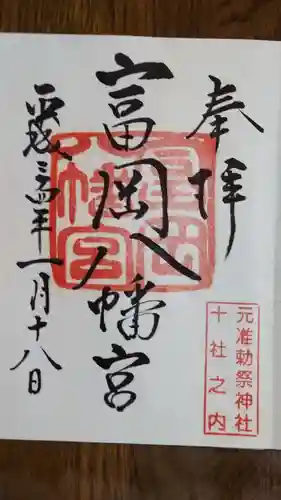 奉拝
富岡八幡宮
平成三十年一月十八日
富岡八幡宮
元准勅祭神社
十社之内